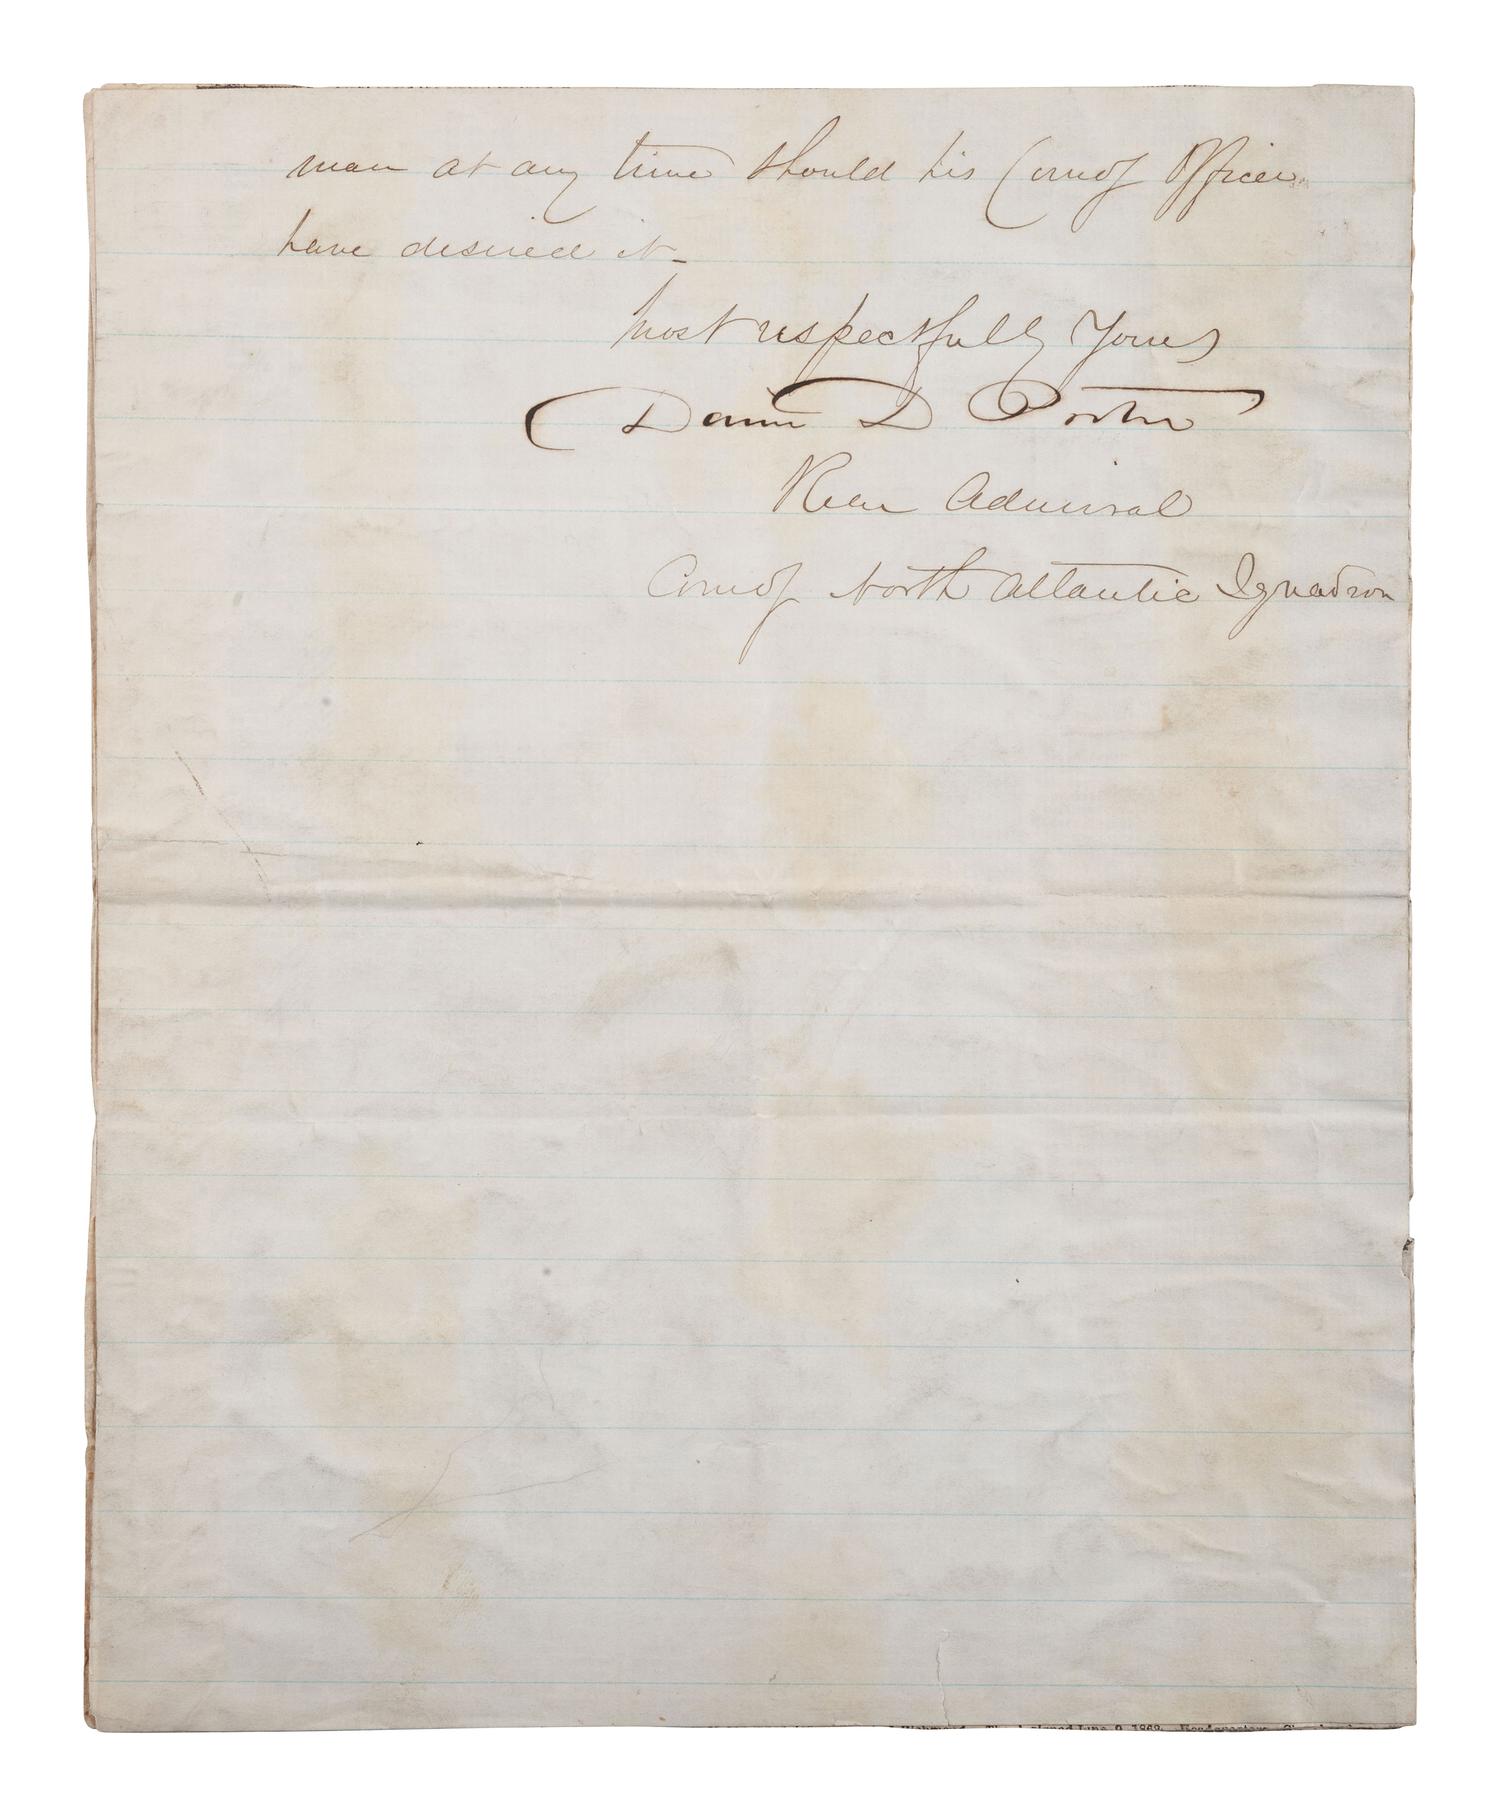 man at any time should his Comdg Officer
have desired it –
most respectfully Yours
David D Porter
Rear Admiral
Comdg North Atlantic Squadron
June 9, 1862. Headquarters